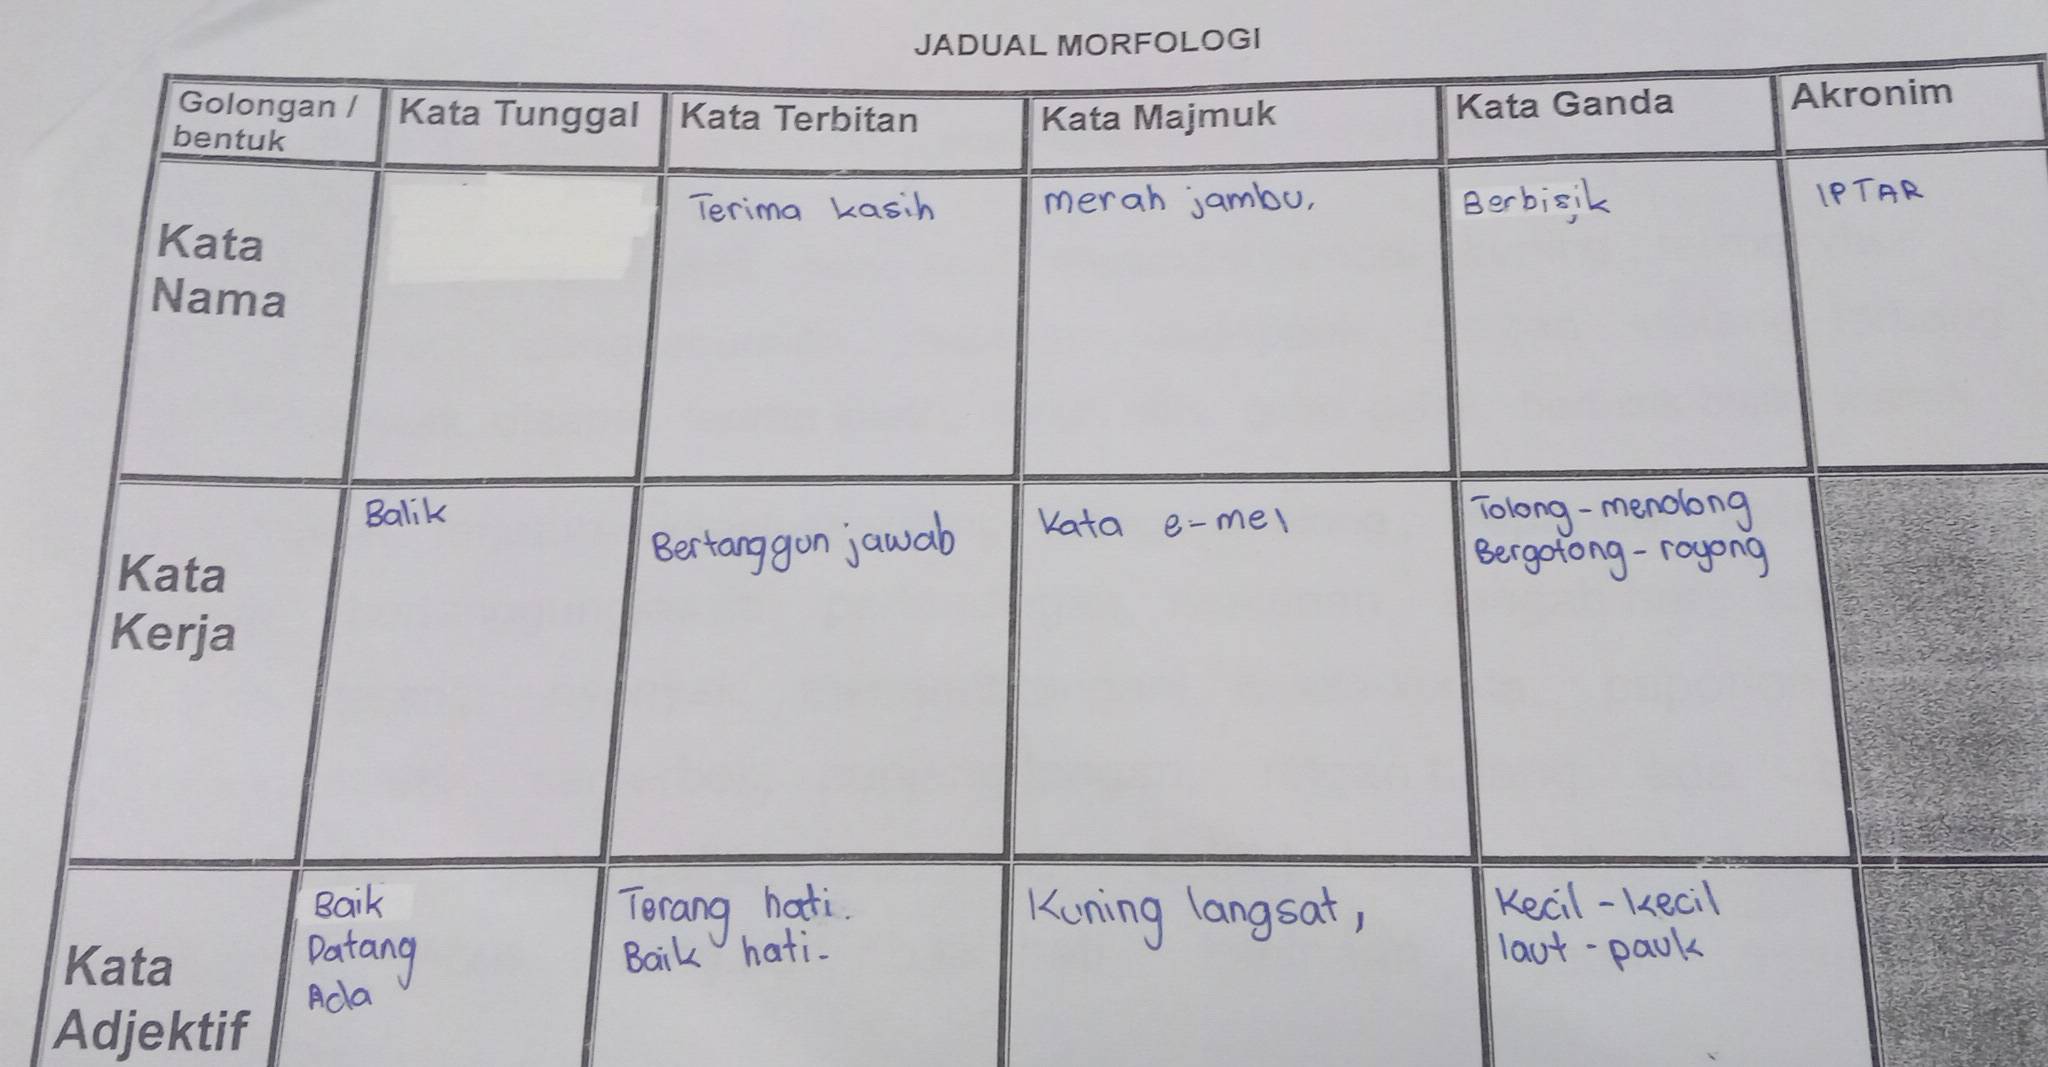 JADUAL MORFOLOGI
Golongan / bentuk
Kata Tunggal
Kata Terbitan
Kata Majmuk
Kata Ganda
Akronim
Kata
Nama
Terima kasih
merah jambu,
Berbisik
IPTAR
Kata
Kerja
Balik
Bertanggun jawab
Kata e-mel
Tolong-menolong
Bergotong-royong
Kata
Adjektif
Baik
Datang
Ada
Terang hati.
Baik hati.
Kuning langsat,
Kecil-kecil
laut-pauk